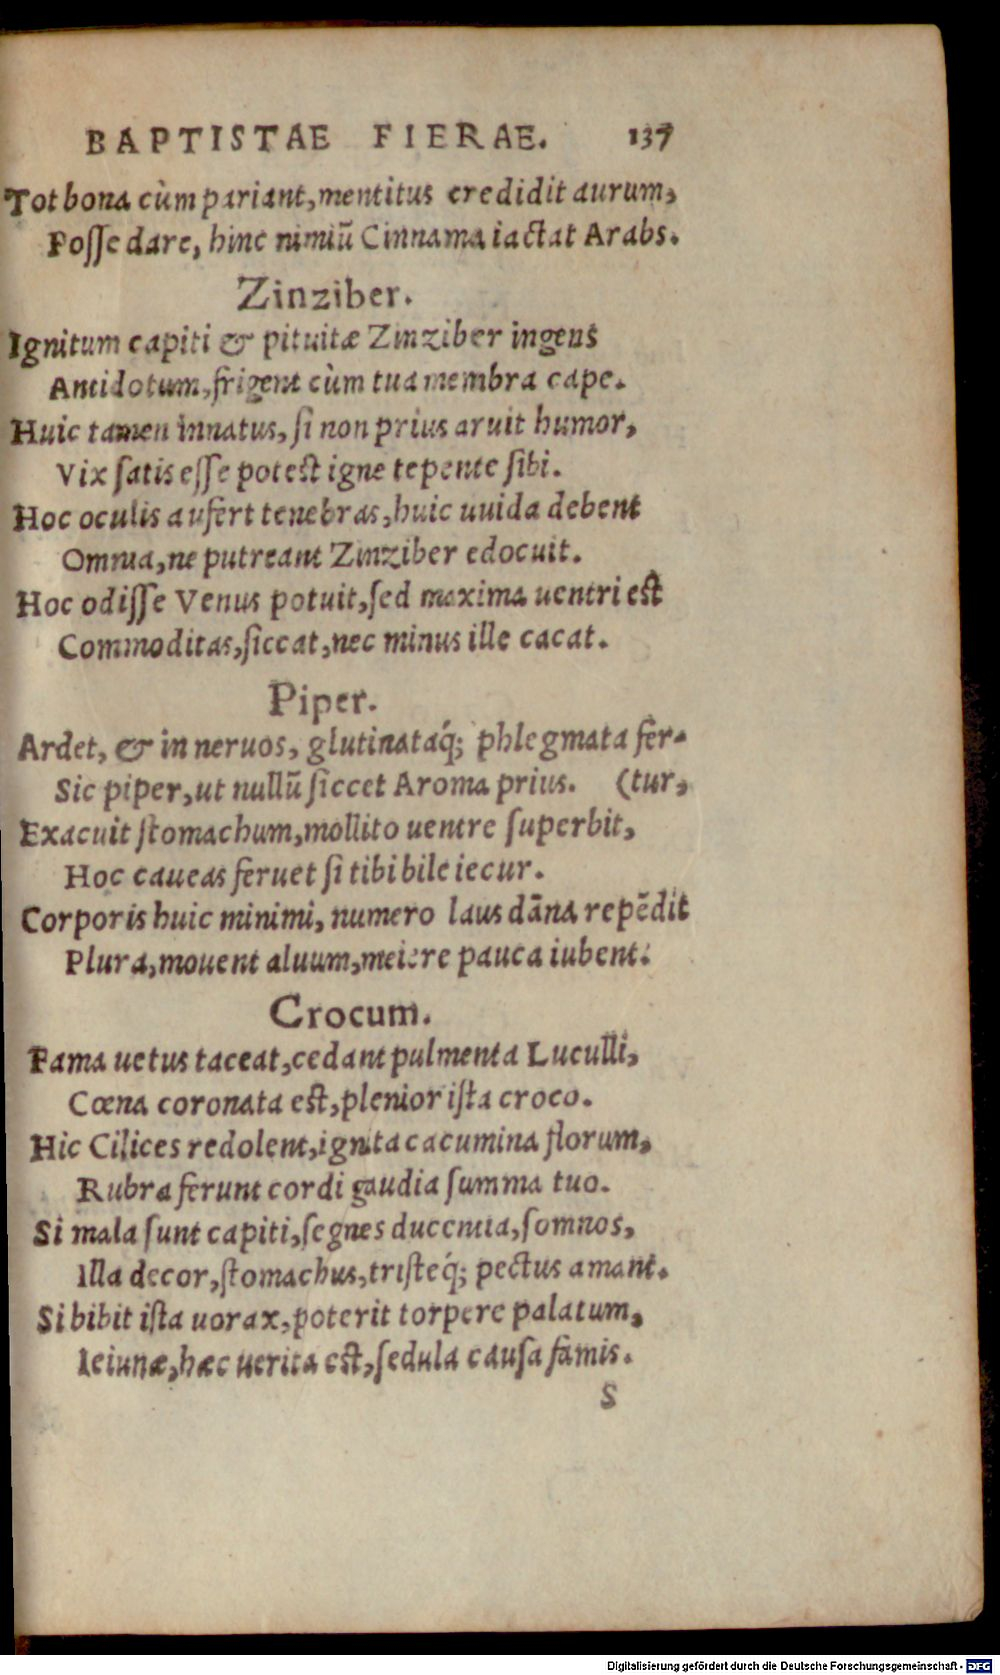 BAPTISTAE FIERAE. 137
Tot bona cùm pariant, mentitus credidit aurum,
Posse dare, hinc nimiũ Cinnama iactat Arabs.
Zinziber.
Ignitum capiti & pituitæ Zinziber ingens
Antidotum, frigent cùm tua membra cape.
Huic tamen innatus, si non prius aruit humor,
Vix satis esse potest igne tepente sibi.
Hoc oculis aufert tenebras, huic uuida debent
Omnia, ne putreant Zinziber edocuit.
Hoc odisse Venus potuit, sed maxima uentri est
Commoditas, siccat, nec minus ille cacat.
Piper.
Ardet, & in neruos, glutinataq́; phlegmata fer-
Sic piper, ut nullũ siccet Aroma prius. (tur,
Exacuit stomachum, mollito uentre superbit,
Hoc caueas feruet si tibi bile iecur.
Corporis huic minimi, numero laus dãna repẽdit
Plura, mouent aluum, meiere pauca iubent.
Crocum.
Fama uetus taceat, cedant pulmenta Luculli,
Cœna coronata est, plenior ista croco.
Hic Cilices redolent, ignita cacumina florum,
Rubra ferunt cordi gaudia summa tuo.
Si mala sunt capiti, segnes ducentia, somnos,
Illa decor, stomachus, tristeq́; pectus amant.
Si bibit ista uorax, poterit torpere palatum,
Ieiunæ, hæc uerita est, sedula causa famis.
S
Digitalisierung gefördert durch die Deutsche Forschungsgemeinschaft - DFG